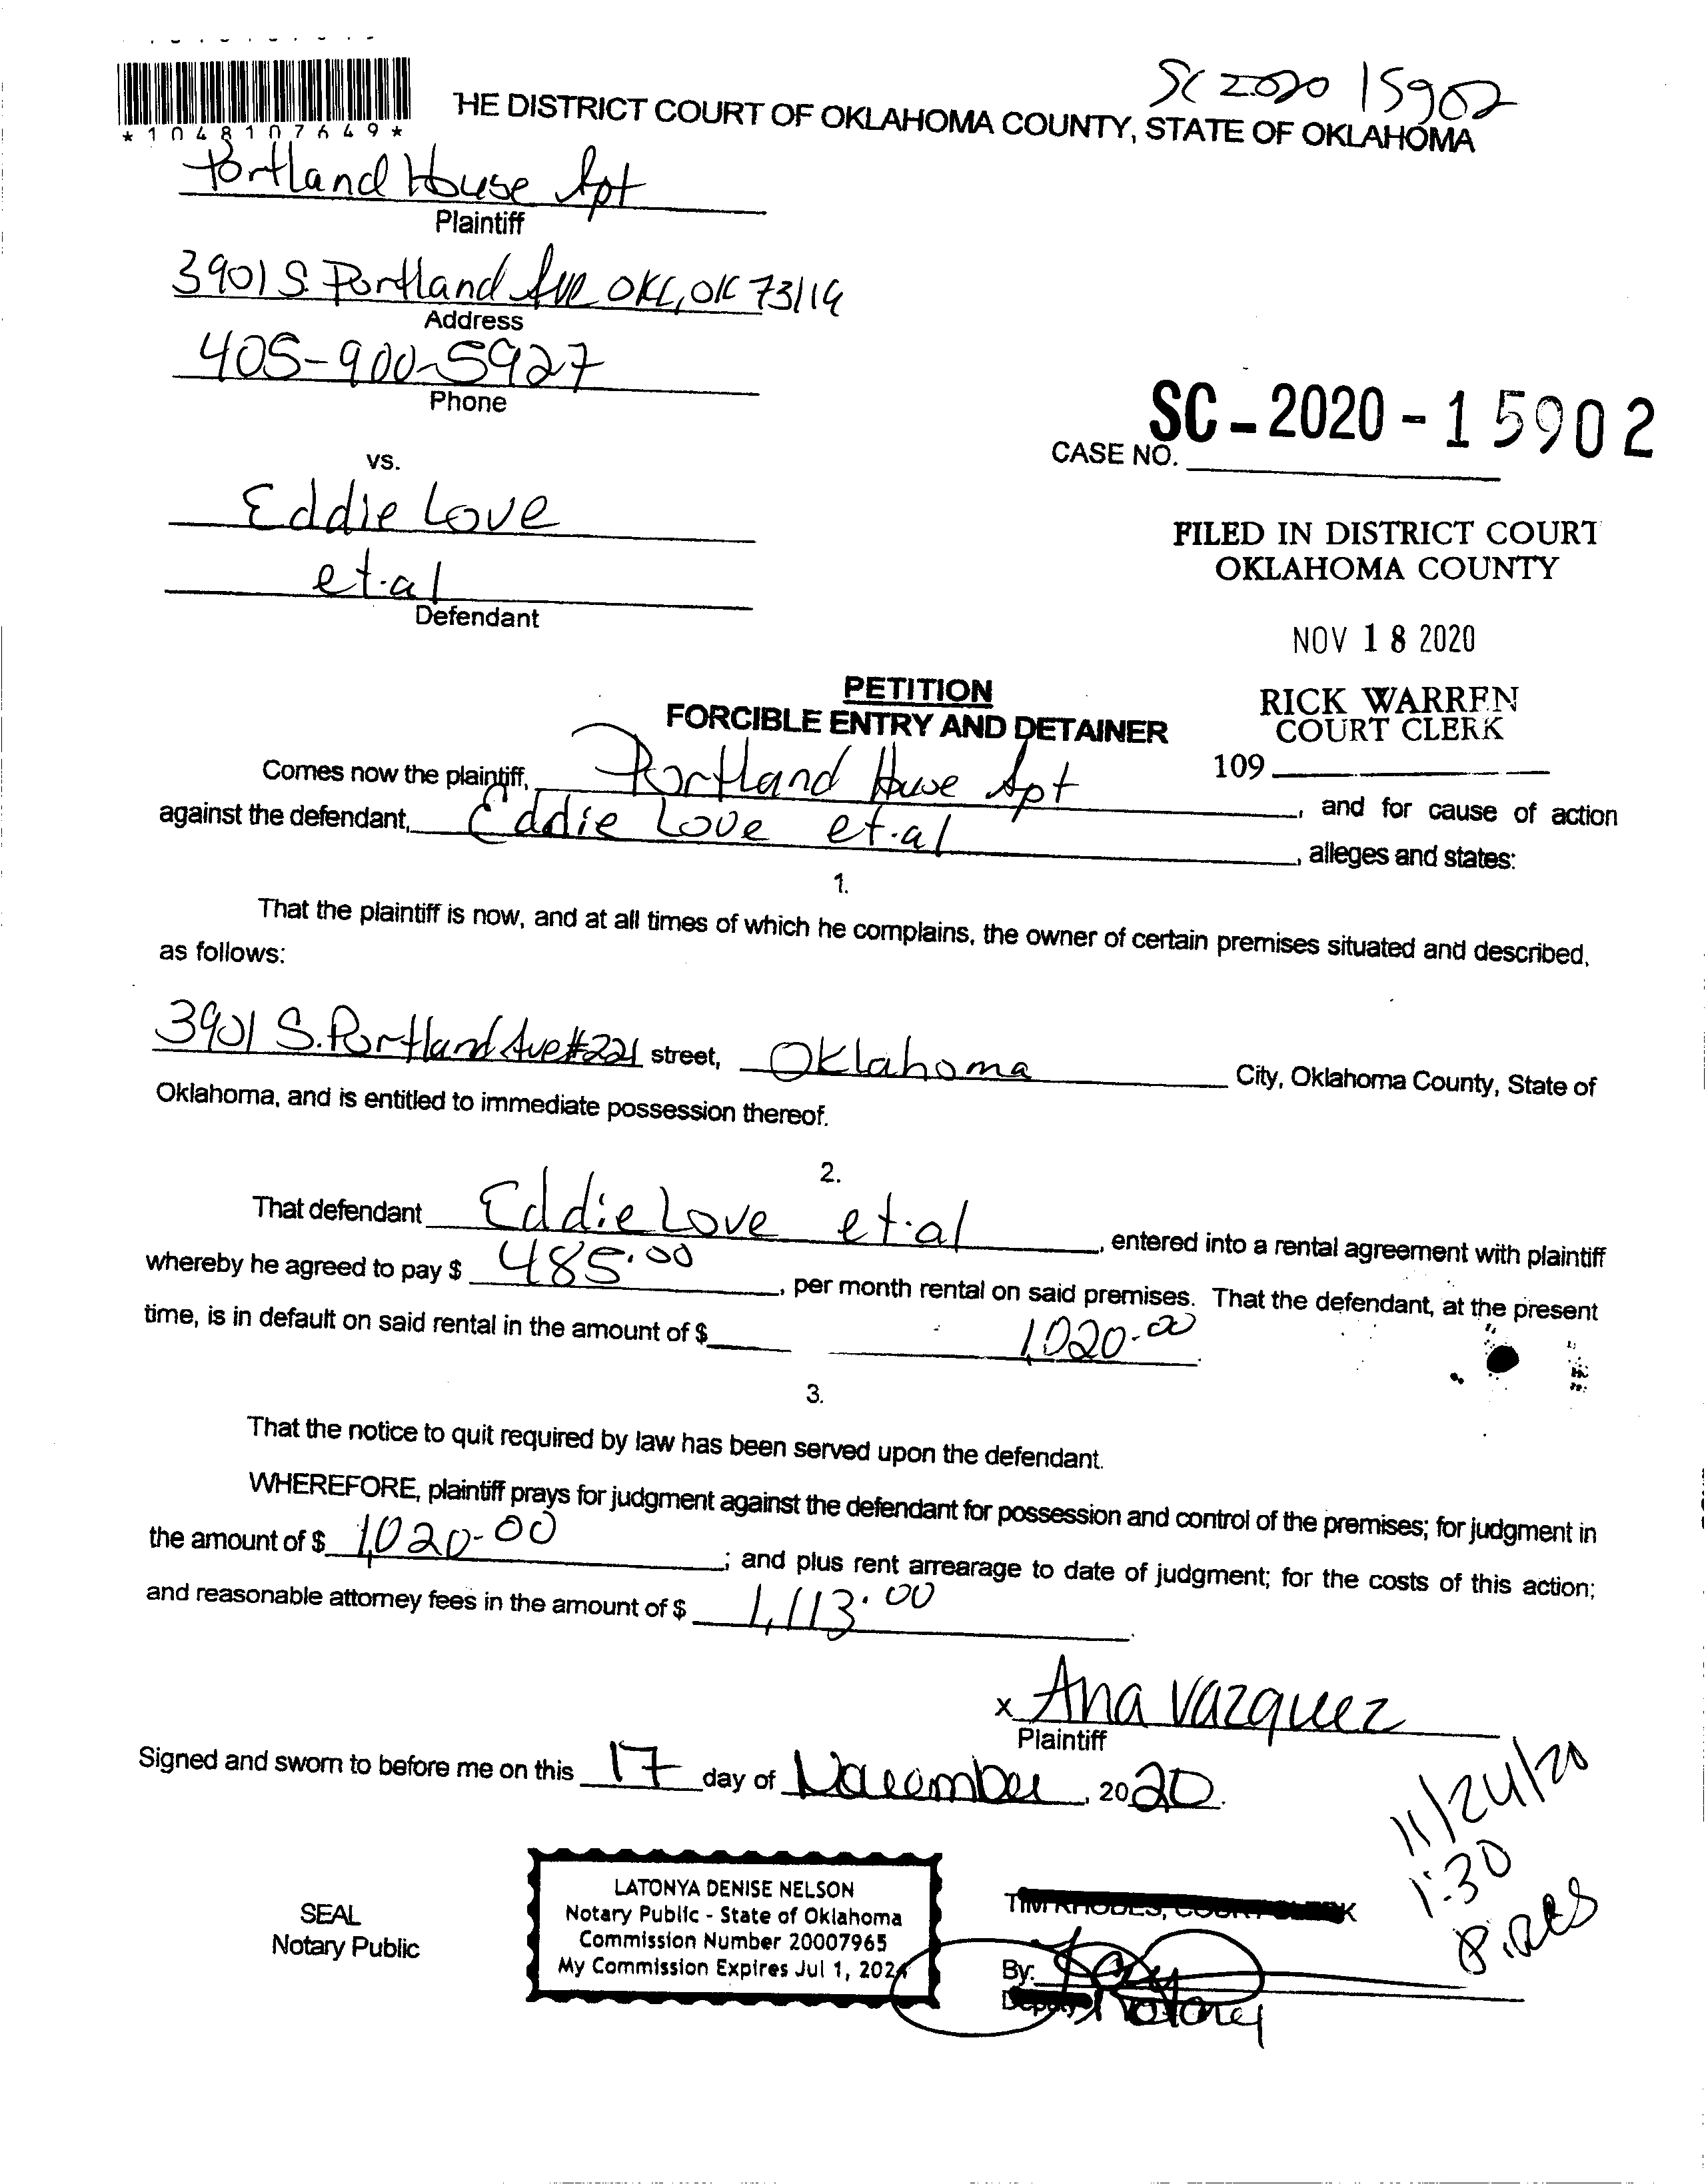 SC 2020 15902
*1048107649*
HE DISTRICT COURT OF OKLAHOMA COUNTY, STATE OF OKLAHOMA
Portland House Apt
Plaintiff
3901 S. Portland Ave OKC, OK 73119
Address
405-900-5927
Phone
SC-2020-15902
CASE NO.
vs.
Eddie Love
et.al
Defendant
FILED IN DISTRICT COURT
OKLAHOMA COUNTY
NOV 18 2020
RICK WARREN
COURT CLERK
109
PETITION
FORCIBLE ENTRY AND DETAINER
Comes now the plaintiff, Portland House Apt, and for cause of action
against the defendant, Eddie Love et.al, alleges and states:
1.
That the plaintiff is now, and at all times of which he complains, the owner of certain premises situated and described,
as follows:
3901 S. Portland Ave #221 street, Oklahoma City, Oklahoma County, State of
Oklahoma, and is entitled to immediate possession thereof.
2.
That defendant Eddie Love et.al, entered into a rental agreement with plaintiff
whereby he agreed to pay $ 485.00, per month rental on said premises. That the defendant, at the present
time, is in default on said rental in the amount of $ 1,020.00.
3.
That the notice to quit required by law has been served upon the defendant.
WHEREFORE, plaintiff prays for judgment against the defendant for possession and control of the premises; for judgment in
the amount of $ 1,020.00; and plus rent arrearage to date of judgment; for the costs of this action;
and reasonable attorney fees in the amount of $ 1,113.00.
x Ana Vazquez
Plaintiff
Signed and sworn to before me on this 17 day of November, 2020.
11/24/20
1:30
SEAL
Notary Public
LATONYA DENISE NELSON
Notary Public - State of Oklahoma
Commission Number 20007965
My Commission Expires Jul 1, 2024
TIM RHODES, COURT CLERK
By:
Deputy Notary